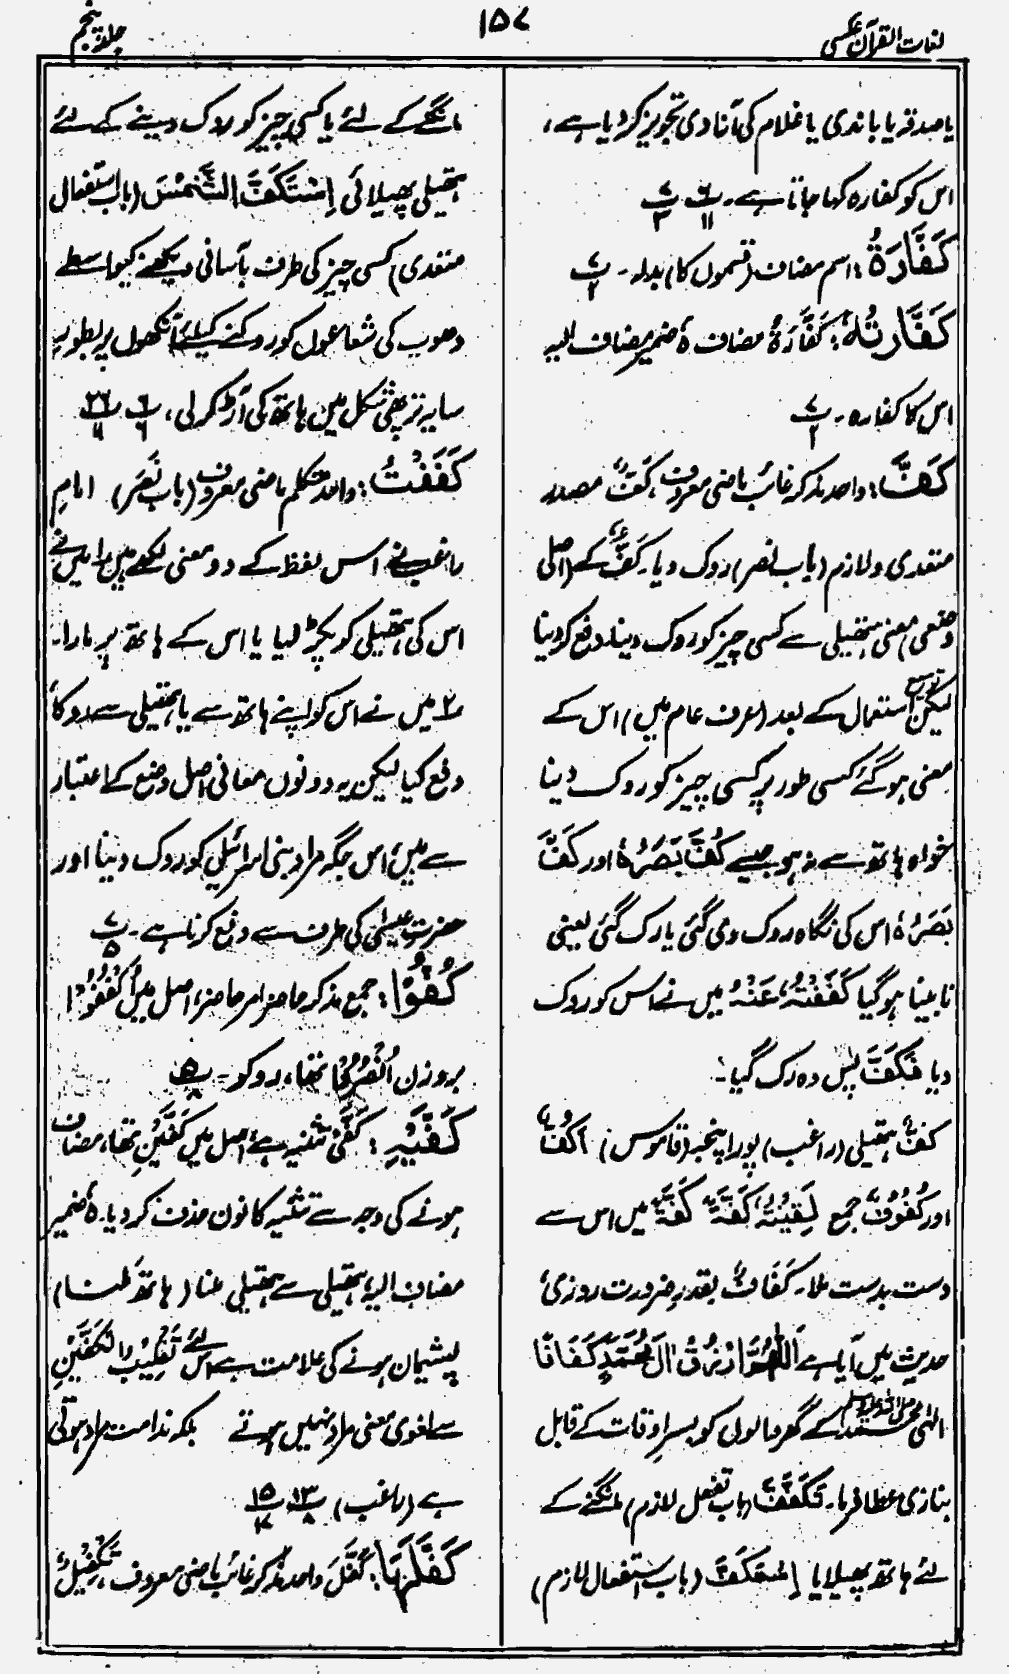 لغات القرآن عکسی
۱۵۷
جلد پنجم
یا صدقہ یا باندی یا غلام کی آزادی تجویز کر دیا ہے،
اس کو کفارہ کہا جاتا ہے۔ پ۶ پ۷
۱۱ ۳
كَفَّارَةُ: اسم مضاف (قسموں کا) بدلہ۔ پ۷
۲
كَفَّارَتُهٗ: كَفَّارَةُ مضاف ہٗ ضمیر مضاف الیہ
اس کا کفارہ۔ پ۷
۲
كَفَّ: واحد مذکر غائب ماضی معروف، كَفٌّ مصدر
متعدی و لازم (باب نصر) روک دیا۔ كَفٌّ کے (اصلی
وضعی) معنی ہتھیلی سے کسی چیز کو روک دینا، دفع کر دینا
لیکن توسیع استعمال کے بعد (عرف عام میں) اس کے
معنی ہو گئے کسی طور پر کسی چیز کو روک دینا
خواہ ہاتھ سے نہ ہو جیسے كُفَّ بَصَرُهٗ اور كَفَّ
بَصَرُهٗ اس کی نگاہ روک دی گئی یا رک گئی یعنی
نابینا ہو گیا كَفَفْتُهٗ عَنْهُ میں نے اس کو روک
دیا فَكَفَّ پس وہ رک گیا۔
كَفٌّ ہتھیلی (راغب) پورا پنجہ (قاموس) اَكُفٌّ
اور كُفُوْفٌ جمع لَقِيْتُهٗ كَفَّةً كَفَّةً میں اس سے
دست بدست ملا۔ كَفَافٌ بقدرِ ضرورت روزی
حدیث میں آیا ہے اَللّٰهُمَّ ارْزُقْ اٰلَ مُحَمَّدٍ كَفَافًا
الٰہی محمد صلی اللہ علیہ وسلم کے گھر والوں کو بسر اوقات کے قابل
روزی عطا فرما۔ تَكَفَّفَ (باب تفعل لازم) مانگنے کے
لئے ہاتھ پھیلایا اِسْتَكَفَّ (باب استفعال لازم)
مانگنے کے لئے یا کسی چیز کو روک دینے کے لئے
ہتھیلی پھیلائی اِسْتَكَفَّ الشَّمْسَ (باب استفعال
متعدی) کسی چیز کی طرف بآسانی دیکھنے کیواسطے
دھوپ کی شعاعوں کو روکنے کیلئے آنکھوں پر بطور
سایہ ترچھی شکل میں ہاتھ کی آڑ کر لی، پ۶ پ۲۶
۶ ۱۱
كَفَفْتُ: واحد متکلم ماضی معروف (باب نَصَرَ) امام
راغب نے اس لفظ کے دو معنی لکھے ہیں ۱ میں نے
اس کی ہتھیلی کو پکڑ لیا یا اس کے ہاتھ پر مارا۔
۲ میں نے اس کو اپنے ہاتھ سے یا ہتھیلی سے روکا
دفع کیا لیکن یہ دونوں معانی اصل وضع کے اعتبار
سے ہیں، اس جگہ مراد بنی اسرائیل کو روک دینا اور
حضرت عیسیٰ کی طرف سے دفع کرنا ہے۔ پ۷
۵
كُفُّوْا: جمع مذکر حاضر امر حاضر، اصل میں اُكْفُفُوْا
بروزن اُنْصُرُوْا تھا، روکو۔ پ۵
۸
كَفَّيْهِ: كَفَّىْ تثنیہ ہے، اصل میں كَفَّيْنِ تھا، مضاف
ہونے کی وجہ سے تثنیہ کا نون حذف کر دیا۔ ہٖ ضمیر
مضاف الیہ، ہتھیلی سے ہتھیلی ملنا (ہاتھ ملنا)
پشیمان ہونے کی علامت ہے اس لئے تَقْلِيْبُ الْكَفَّيْنِ
سے لغوی معنی مراد نہیں ہوتے بلکہ ندامت مراد ہوتی
ہے (راغب) پ۱۳ پ۱۵
۸ ۱۷
كَفَّلَهَا: كَفَّلَ واحد مذکر غائب ماضی معروف، تَكْفِيْلٌ